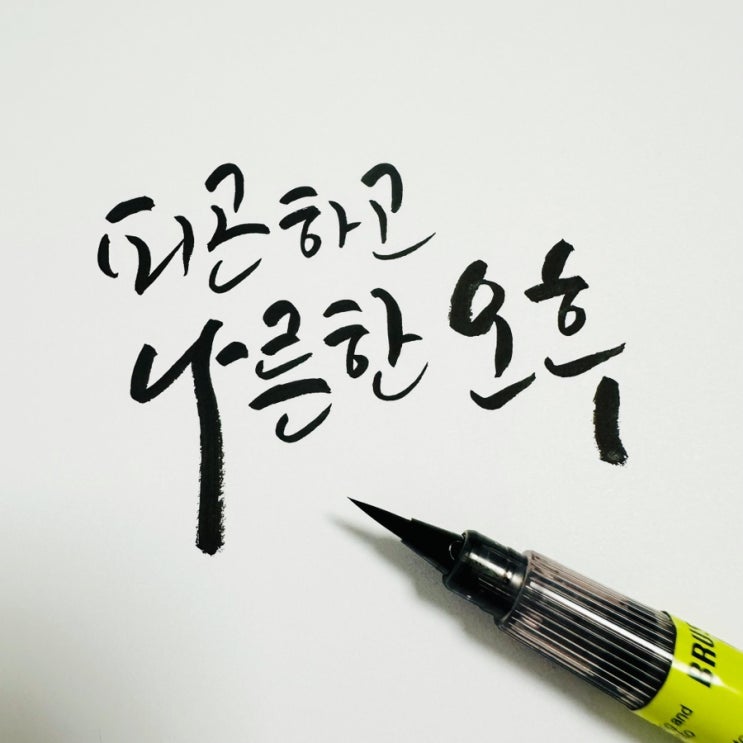 피곤하고
나른한 오후
BRUS
and